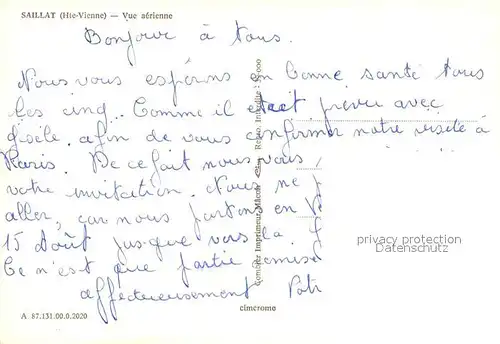 SAILLAT (Hte-Vienne) — Vue aérienne
Bonjour à tous.
Nous vous espérons en bonne santé tous
les cinq... Comme il était prévu avec
gisèle. afin de vous confirmer notre visite à
Paris. De ce fait nous vous
votre invitation. Nous ne
aller, car nous partons en
15 Août jusque vers la
Ce n'est que partie remise
affectueusement
Combier Imprimeur Mâcon
privacy protection
Datenschutz
A 87.131.00.0.2020
cimcrome